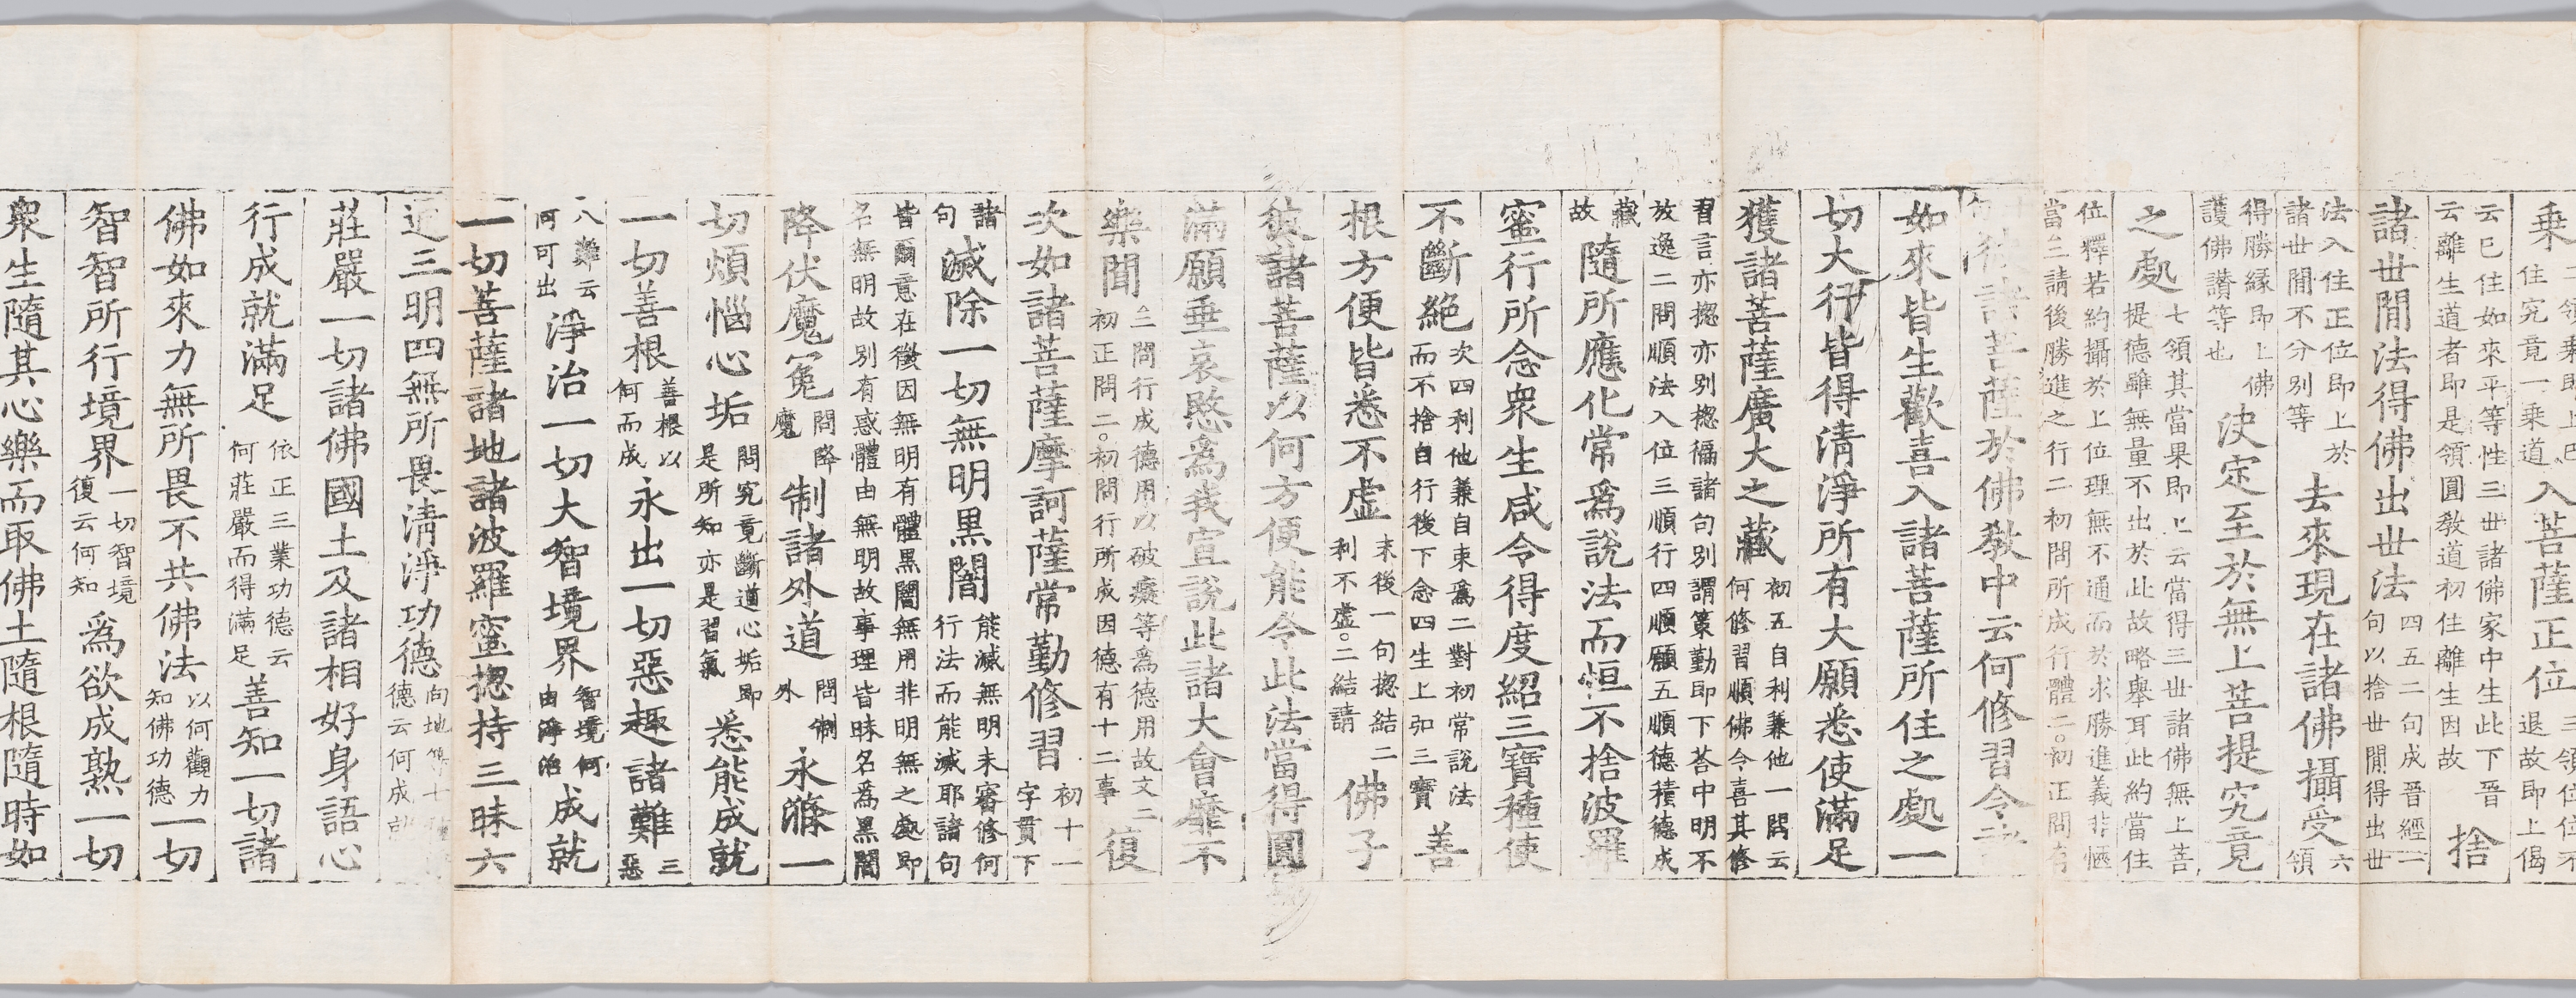 乘
二領乘即上已
住究竟一乘道
入菩薩正位
三領位位不
退故即上偈
云已住如來平等性三世諸佛家中生此下晉
云離生道者即是領圓教道初住離生因故
捨
諸世閒法得佛出世法
四五二句成晉經二
句以捨世閒得出世
法入住正位即上於
諸世閒不分別等
去來現在諸佛攝受
六
領
得勝緣即上佛
護佛讚等也
決定至於無上菩提究竟
之處
七領其當果即上云當得三世諸佛無上菩
提德雖無量不出於此故略舉耳此約當住
位釋若約攝於上位理無不通而於求勝進義非愜
當三請後勝進之行二初問所成行體二。初正問有
彼諸菩薩於佛教中云何修習令諸
如來皆生歡喜入諸菩薩所住之處一
切大行皆得清淨所有大願悉使滿足
獲諸菩薩廣大之藏
初五自利兼他一問云
何修習順佛令喜其修
習言亦揔亦別揔徧諸句別謂策勤即下荅中明不
放逸二問順法入位三順行四順願五順德積德成
藏
故
隨所應化常爲說法而恒不捨波羅
蜜行所念衆生咸令得度紹三寶種使
不斷絶
次四利他兼自束爲二對初常說法
而不捨自行後下念四生上弘三寶
善
根方便皆悉不虛
末後一句揔結二
利不虛。二結請
佛子
彼諸菩薩以何方便能令此法當得圓
滿願垂哀愍爲我宣說此諸大會靡不
樂聞
三問行成德用以破癡等爲德用故文二
初正問二。初問行所成因德有十二事
復
次如諸菩薩摩訶薩常勤修習
初十一
字貫下
諸
句
滅除一切無明黑闇
能滅無明未審修何
行法而能滅耶諸句
皆爾意在徵因無明有體黑闇無用非明無之處即
名無明故別有惑體由無明故事理皆昧名爲黑闇
降伏魔冤
問降
魔
制諸外道
問制
外
永滌一
切煩惱心垢
問究竟斷道心垢即
是所知亦是習氣
悉能成就
一切善根
善根以
何而成
永出一切惡趣諸難
三
惡
八難云
何可出
淨治一切大智境界
智境何
由淨治
成就
一切菩薩諸地諸波羅蜜揔持三昧六
通三明四無所畏清淨功德
向地等十種
德云何成就
莊嚴一切諸佛國土及諸相好身語心
行成就滿足
依正三業功德云
何莊嚴而得滿足
善知一切諸
佛如來力無所畏不共佛法
以何觀力
知佛功德
一切
智智所行境界
一切智境
復云何知
爲欲成熟一切
衆生隨其心樂而取佛土隨根隨時如